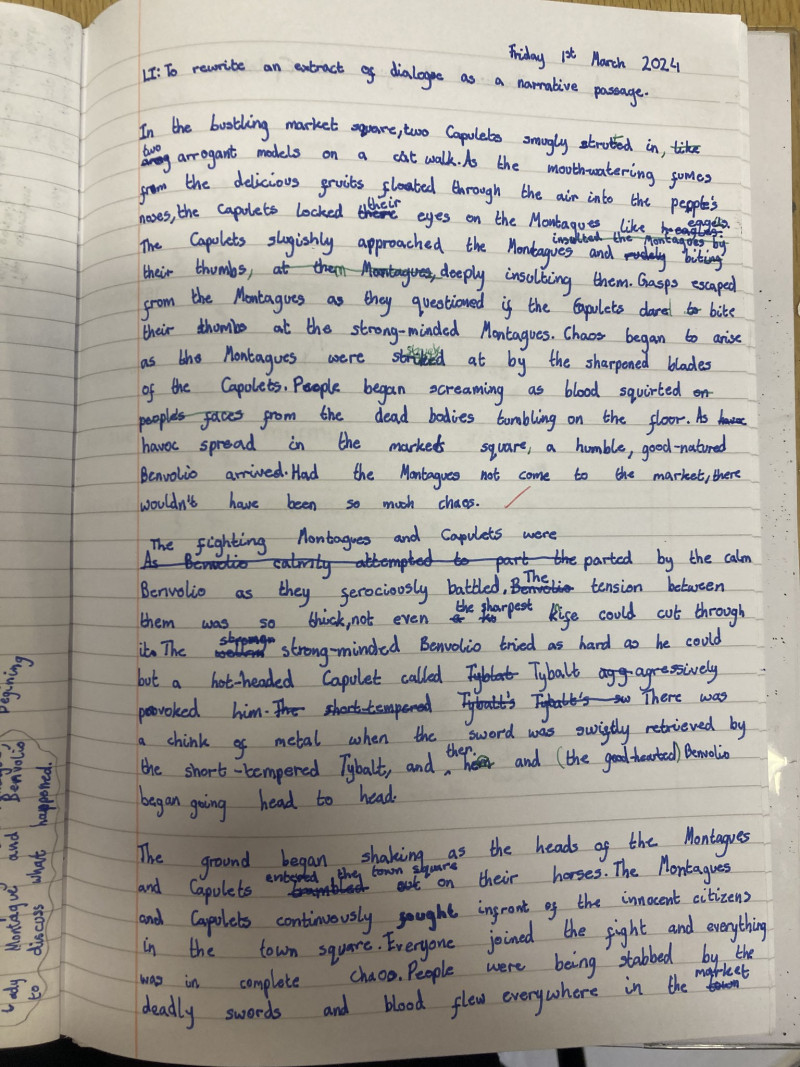 Friday 1st March 2024
LI: To rewrite an extract of dialogue as a narrative passage.
In the bustling market square, two Capulets smugly struted in, like
two
arrogant models on a cat walk. As the mouth-watering fumes
from the delicious fruits floated through the air into the people's
their
noses, the Capulets locked there eyes on the Montagues like eagels.
insulted the Montagues by
The Capulets slugishly approached the Montagues and rudely biting
their thumbs, at them Montagues, deeply insulting them. Gasps escaped
from the Montagues as they questioned if the Capulets dare to bite
their thumbs at the strong-minded Montagues. Chaos began to arise
struck
as the Montagues were struked at by the sharponed blades
of the Capulets. People began screaming as blood squirted on
people's faces from the dead bodies tumbling on the floor. As havoc
havoc spread in the markets square, a humble, good-natured
Benvolio arrived. Had the Montagues not come to the market, there
wouldn't have been so much chaos.
The fighting Montagues and Capulets were
As Benvolio calmly attempted to part the parted by the calm
The
Benvolio as they ferociously battled. Benvolio tension between
the sharpest
them was so thick, not even a kn kife could cut through
strongn
it. The strong-minded Benvolio tried as hard as he could
but a hot-headed Capulet called Tyblat Tybalt agg agressively
povoked him. The short-tempered Tybalt's Tybalt's sw There was
a chink of metal when the sword was swiftly retrieved by
then
the short-tempered Tybalt, and her and (the good-hearted) Benvolio
began going head to head.
The ground began shaking as the heads of the Montagues
entered the town square
and Capulets trambled out on their horses. The Montagues
and Capulets continuously fought infront of the innocent citizens
in the town square. Everyone joined the fight and everything
was in complete chaos. People were being stabbed by the
market
deadly swords and blood flew everywhere in the town
begining
Lady Montague and Benvolio
to discass what happoned.